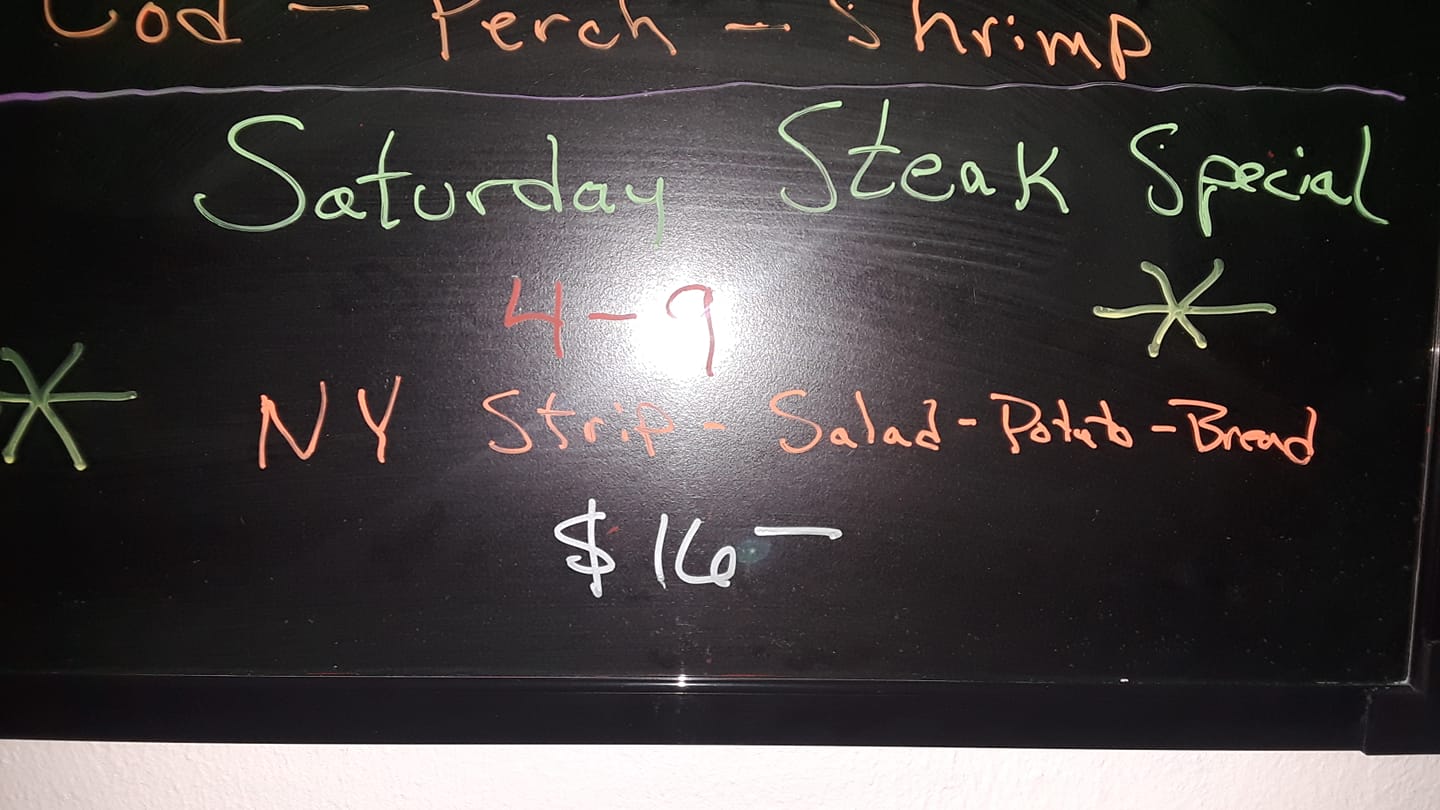 Cod - Perch - Shrimp
Saturday Steak Special
4-9
* NY Strip - Salad - Potato - Bread *
$16-